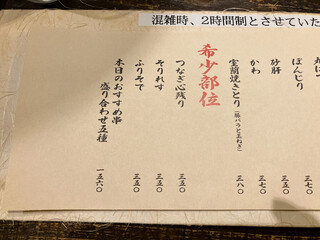 混雑時、2時間制とさせていた
ぼんじり 三七〇
砂肝 三五〇
かわ 三七〇
室蘭焼きとり(豚バラと玉ねぎ) 三八〇
希少部位
つなぎ心残り 三五〇
そりれす 三五〇
ふりそで 三五〇
本日のおすすめ串
盛り合わせ五種 一五六〇